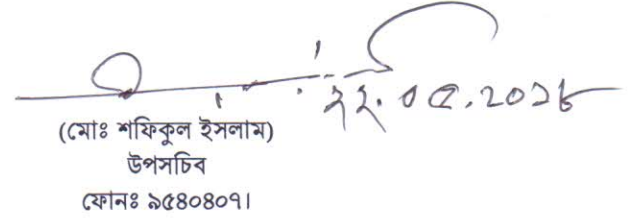 ২২.০৫.২০১৮
(মোঃ শফিকুল ইসলাম)
উপসচিব
ফোনঃ ৯৫৪০৪০৭।